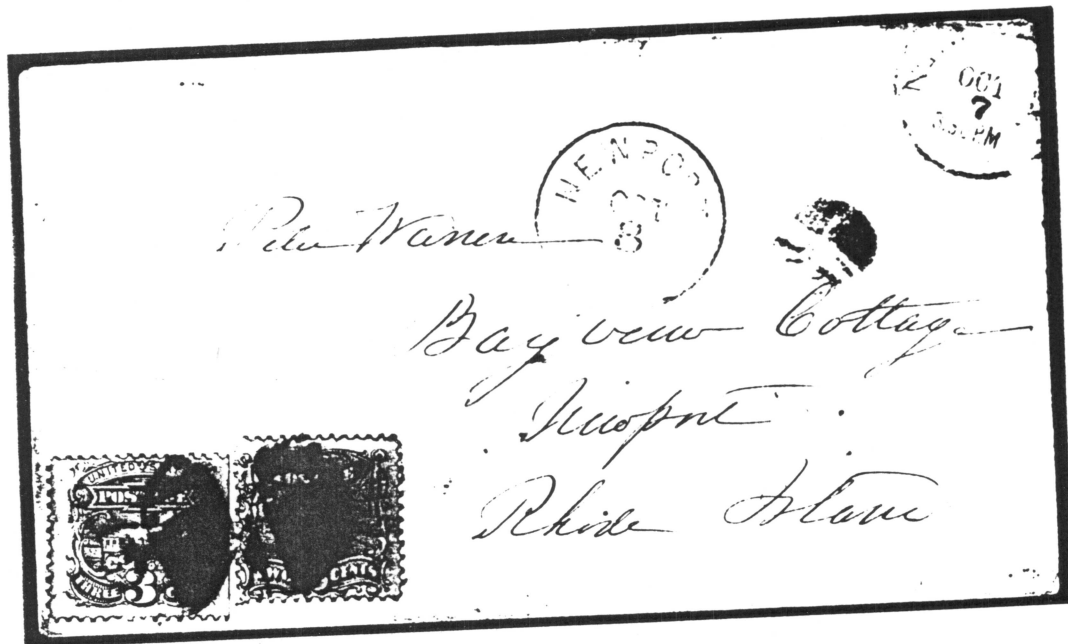 OCT
7
PM
NEWPORT
OCT
8
Peter Warren
Bayview Cottage
Newport
Rhode Island
UNITED
POSTAGE
THREE 3
TWO CENTS